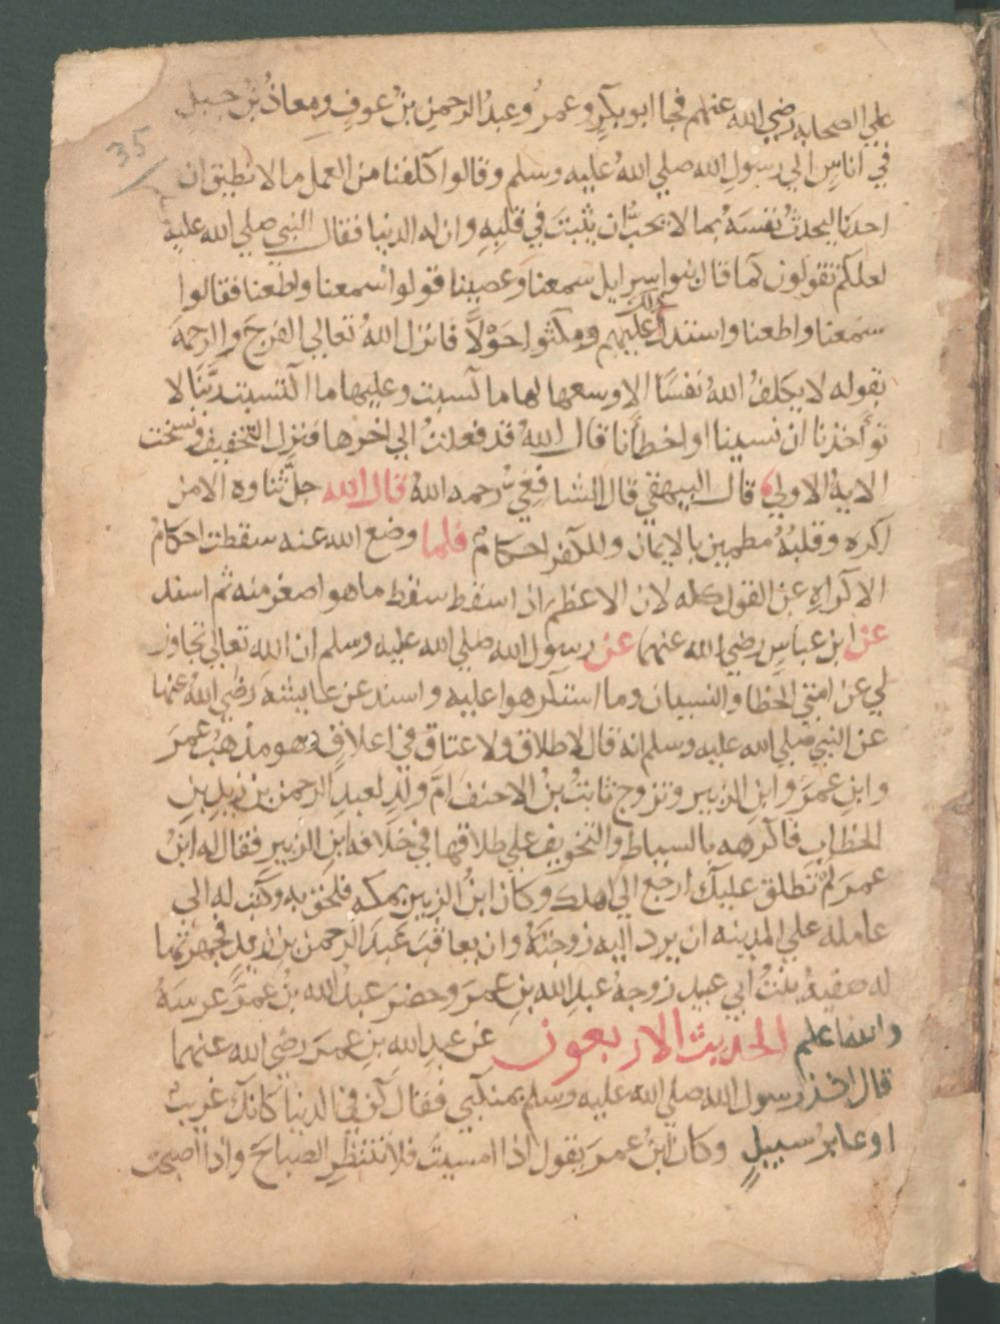 35
علي الصحابه رضي الله عنهم فجا ابو بكرٍ وعمرُ وعبدُ الرحمنِ بنُ عوفٍ ومعاذُ بنُ جبلٍ
في اناسٍ الي رسولِ الله صلي اللهُ عليه وسلم وقالوا كلفنا من العمل ما لا نطيق ان
احدنا ليحدثُ نفسَهُ بما لا يحبُّ ان يثبتَ في قلبِهِ وان له الدنيا فقال النبي صلي الله عليه
لعلكم تقولون كما قال بنوا اسرايل سمعنا وعصينا قولوا سمعنا واطعنا فقالوا
سمعنا واطعنا واشتد ذلك عليهم ومكثوا حَوْلاً فانزل اللهُ تعالي الفرجَ والرحمهَ
بقوله لا يكلفُ اللهُ نفسًا الا وسعها لها ما كسبت وعليها ما اكتسبت ربَّنَا لا
تؤاخذنا ان نسينا او اخطأنا قال اللهُ قد فعلتُ الي اخرها فنزل التخفيف ونسخت
الايهُ الاولي قال البيهقي قال الشافعيُّ رحمه اللهُ قال الله جلَّ ثناوه الا من
اكره وقلبُهُ مطمين بالايمان وللكفر احكامٌ فلما وضع الله عنه سقطت احكامُ
الاكراهِ عن القول كله لان الاعظم اذا سقط سقط ما هو اصغر منه ثم اسند
عن ابن عباسٍ رضي الله عنهما عن رسول الله صلي الله عليه وسلم ان الله تعالي تجاوز
لي عن امتي الخطا والنسيان وما استكرهوا عليه واسند عن عايشهَ رضي اللهُ عنها
عن النبي صلي الله عليه وسلم انه قال لا طلاق ولا عتاق في اغلاقٍ وهو مذهبُ عمرَ
وابنِ عمرَ وابنِ الزبير وتزوج ثابتُ بنُ الاحنف امَّ ولدٍ لعبدِ الرحمن بن زيدِ بنِ
الخطاب فاكرهه بالسياط والتخويف علي طلاقها في خلافه ابنِ الزبير فقال له ابنُ
عمرَ لم تطلق عليك ارجع الي اهلك وكان ابنُ الزبير بمكه فلحق به وكتب له الي
عامله علي المدينه ان يرد اليه زوجتَهُ وان يعاقبَ عبدَ الرحمن بن زيد فجهزتها
له صفيهُ بنتُ ابي عبيد زوجهُ عبدِ الله بنِ عمرَ وحضر عبدُ الله بنُ عمرَ عرسَهُ
والله اعلم الحديث الاربعون عن عبدِ الله بنِ عمرَ رضي الله عنهما
قال اخذ رسول الله صلي الله عليه وسلم بمنكبي فقال كن في الدنيا كانك غريبٌ
او عابرُ سبيلٍ وكان ابنُ عمرَ يقول اذا امسيتَ فلا تنتظرِ الصباحَ واذا اصبحت